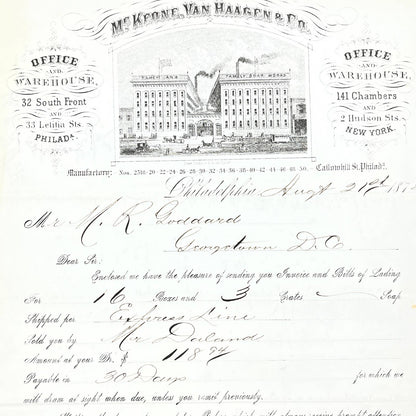 McKeone, Van Haagen & Co.
OFFICE
AND
WAREHOUSE,
32 South Front
AND
33 Letitia Sts.
PHILADA.
OFFICE
AND
WAREHOUSE
141 Chambers
AND
2 Hudson Sts.
NEW YORK.
FAMILY SOAP WORKS
Manufactory:
Callowhill St, Philada.
Philadelphia, Augt 21st 187
Mr M. R. Goddard
Georgetown D. C.
Dear Sir:
Enclosed we have the pleasure of sending you Invoice and Bills of Lading
For 16 Boxes and 3 Crates Soap
Shipped per Express Line
Sold you by Mr Dorland
Amount at your Dr. $ 118 94
Payable in 30 Days for which we
will draw at sight when due, unless you remit previously.